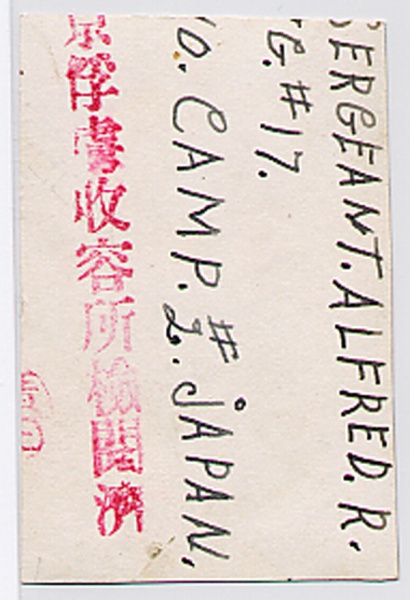 SERGEANT. ALFRED. R.
G. #17.
O. CAMP. #2. JAPAN.
京俘虜收容所檢閲濟